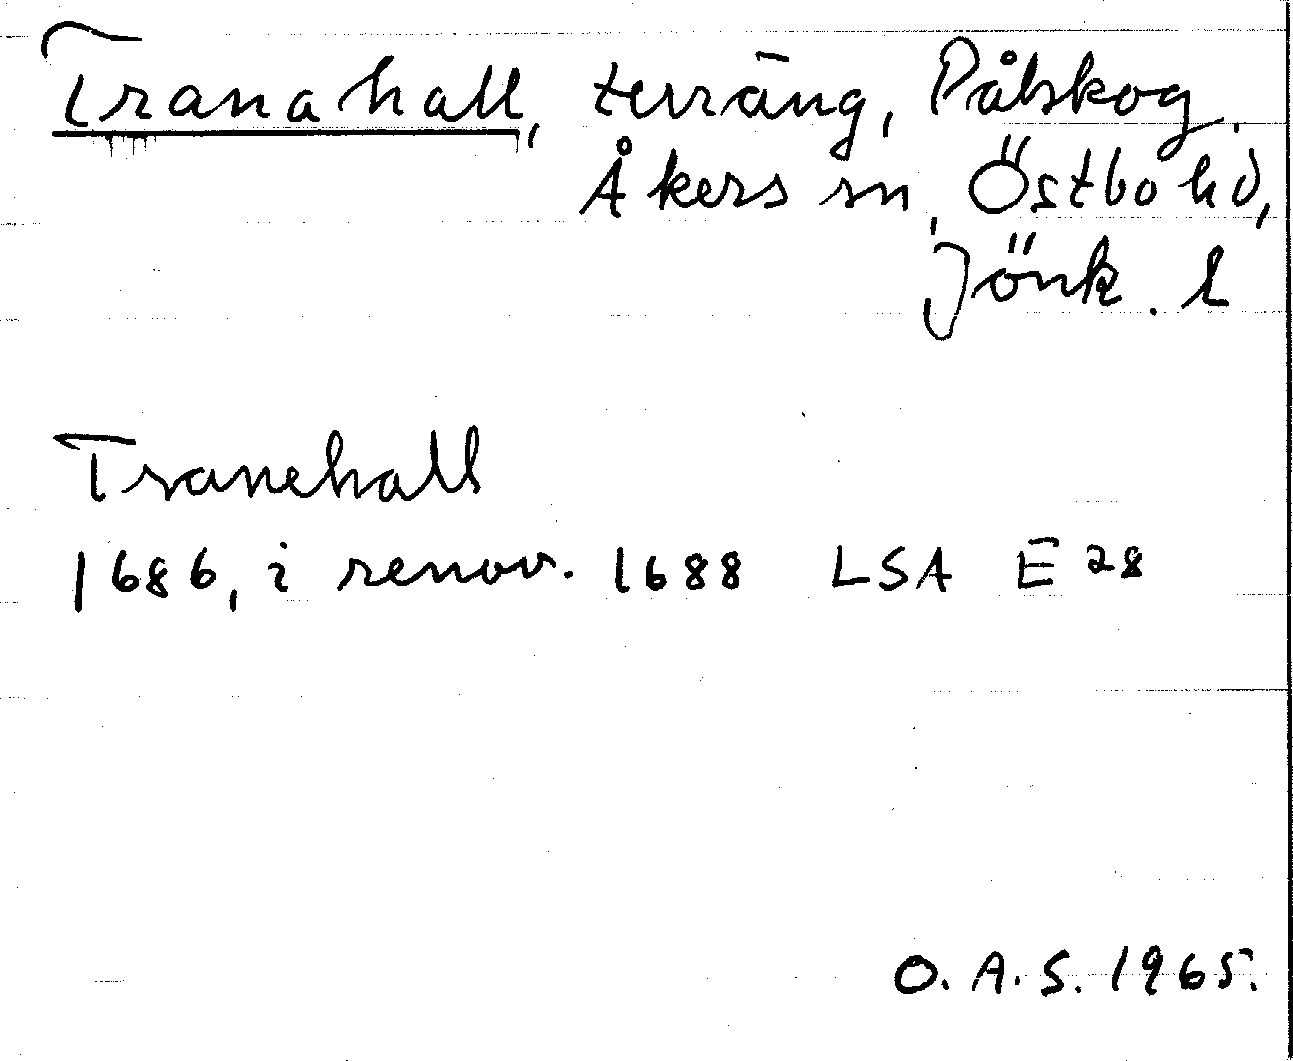 Tranahall, terräng, Pålskog.
Åkers sn, Östbo hd,
Jönk. l
Tranehall
1686, i renov. 1688 LSA E 28
O. A. S. 1965.